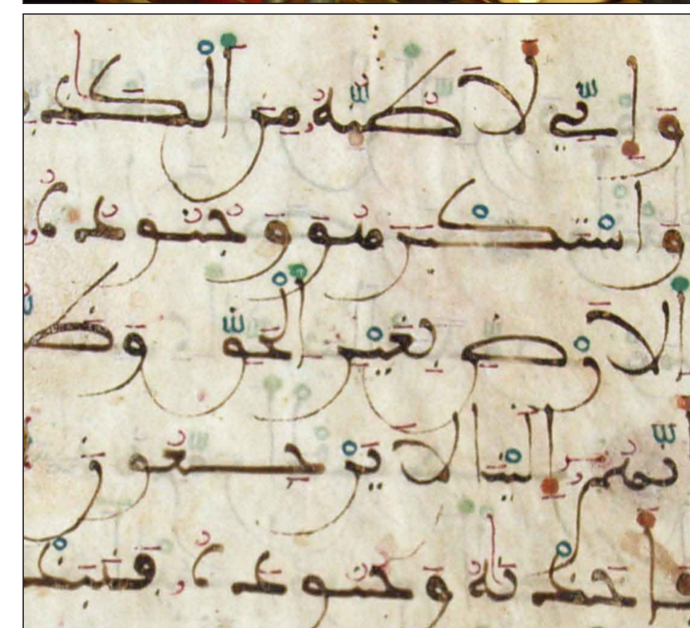 وإني لأظنه من الكذ
واستكبر هو وجنوده
الأرض بغير الحق وظ
أنهم إلينا لا يرجعون
فأخذنه وجنوده فنبذ